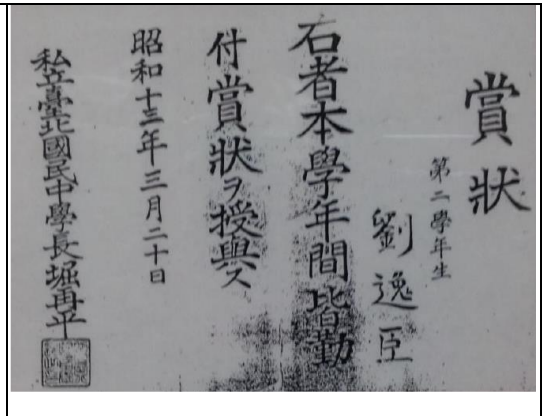 賞狀
第二學年生
劉逸臣
右者本學年間皆勤
付賞狀ヲ授與ス
昭和十三年三月二十日
私立臺北國民中學長堀再平